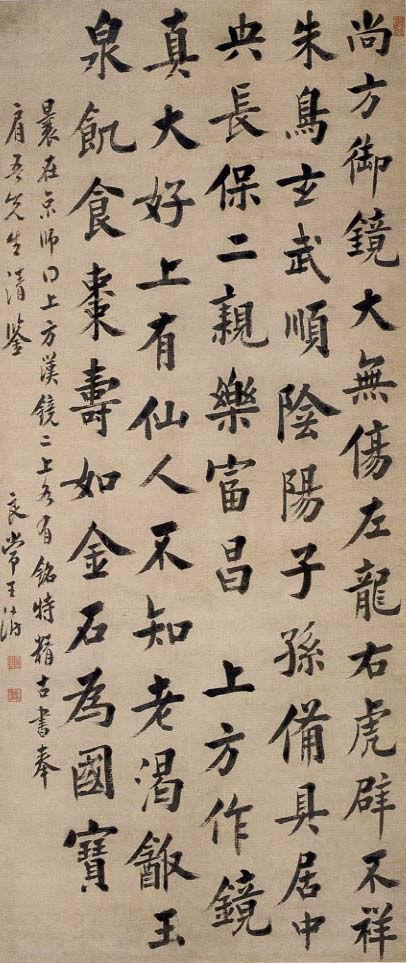 尚方御鏡大無傷左龍右虎辟不祥
朱鳥玄武順陰陽子孫備具居中
央長保二親樂富昌 上方作鏡
真大好上有仙人不知老渴飲玉
泉飢食棗壽如金石為國寶
曩在京師曰上方漢鏡二上各有銘特精古書奉
肩吾先生清鑒
良常王澍